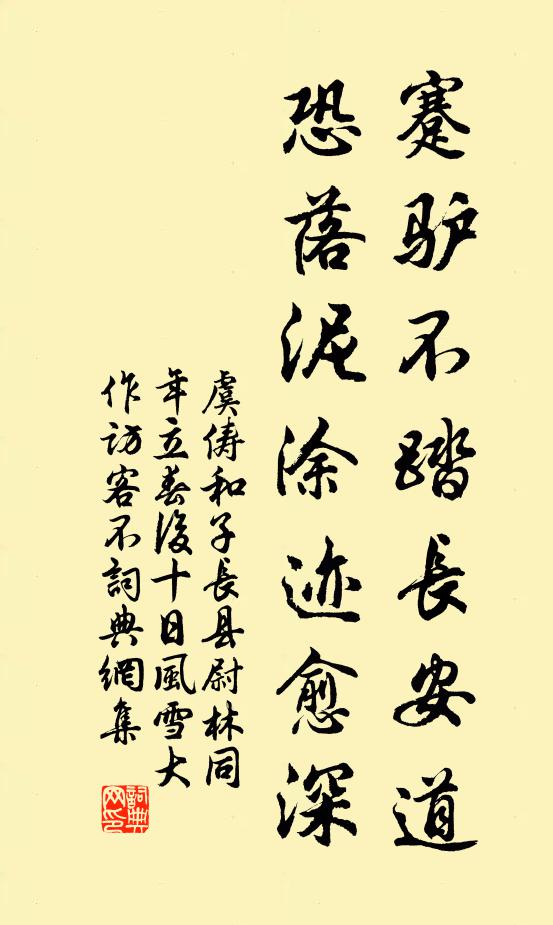 蹇驴不踏長安道
恐落泥涂迹愈深
虞俦和子長县尉林同
年立春後十日風雪大
作访客不詞典網集
詞典网印